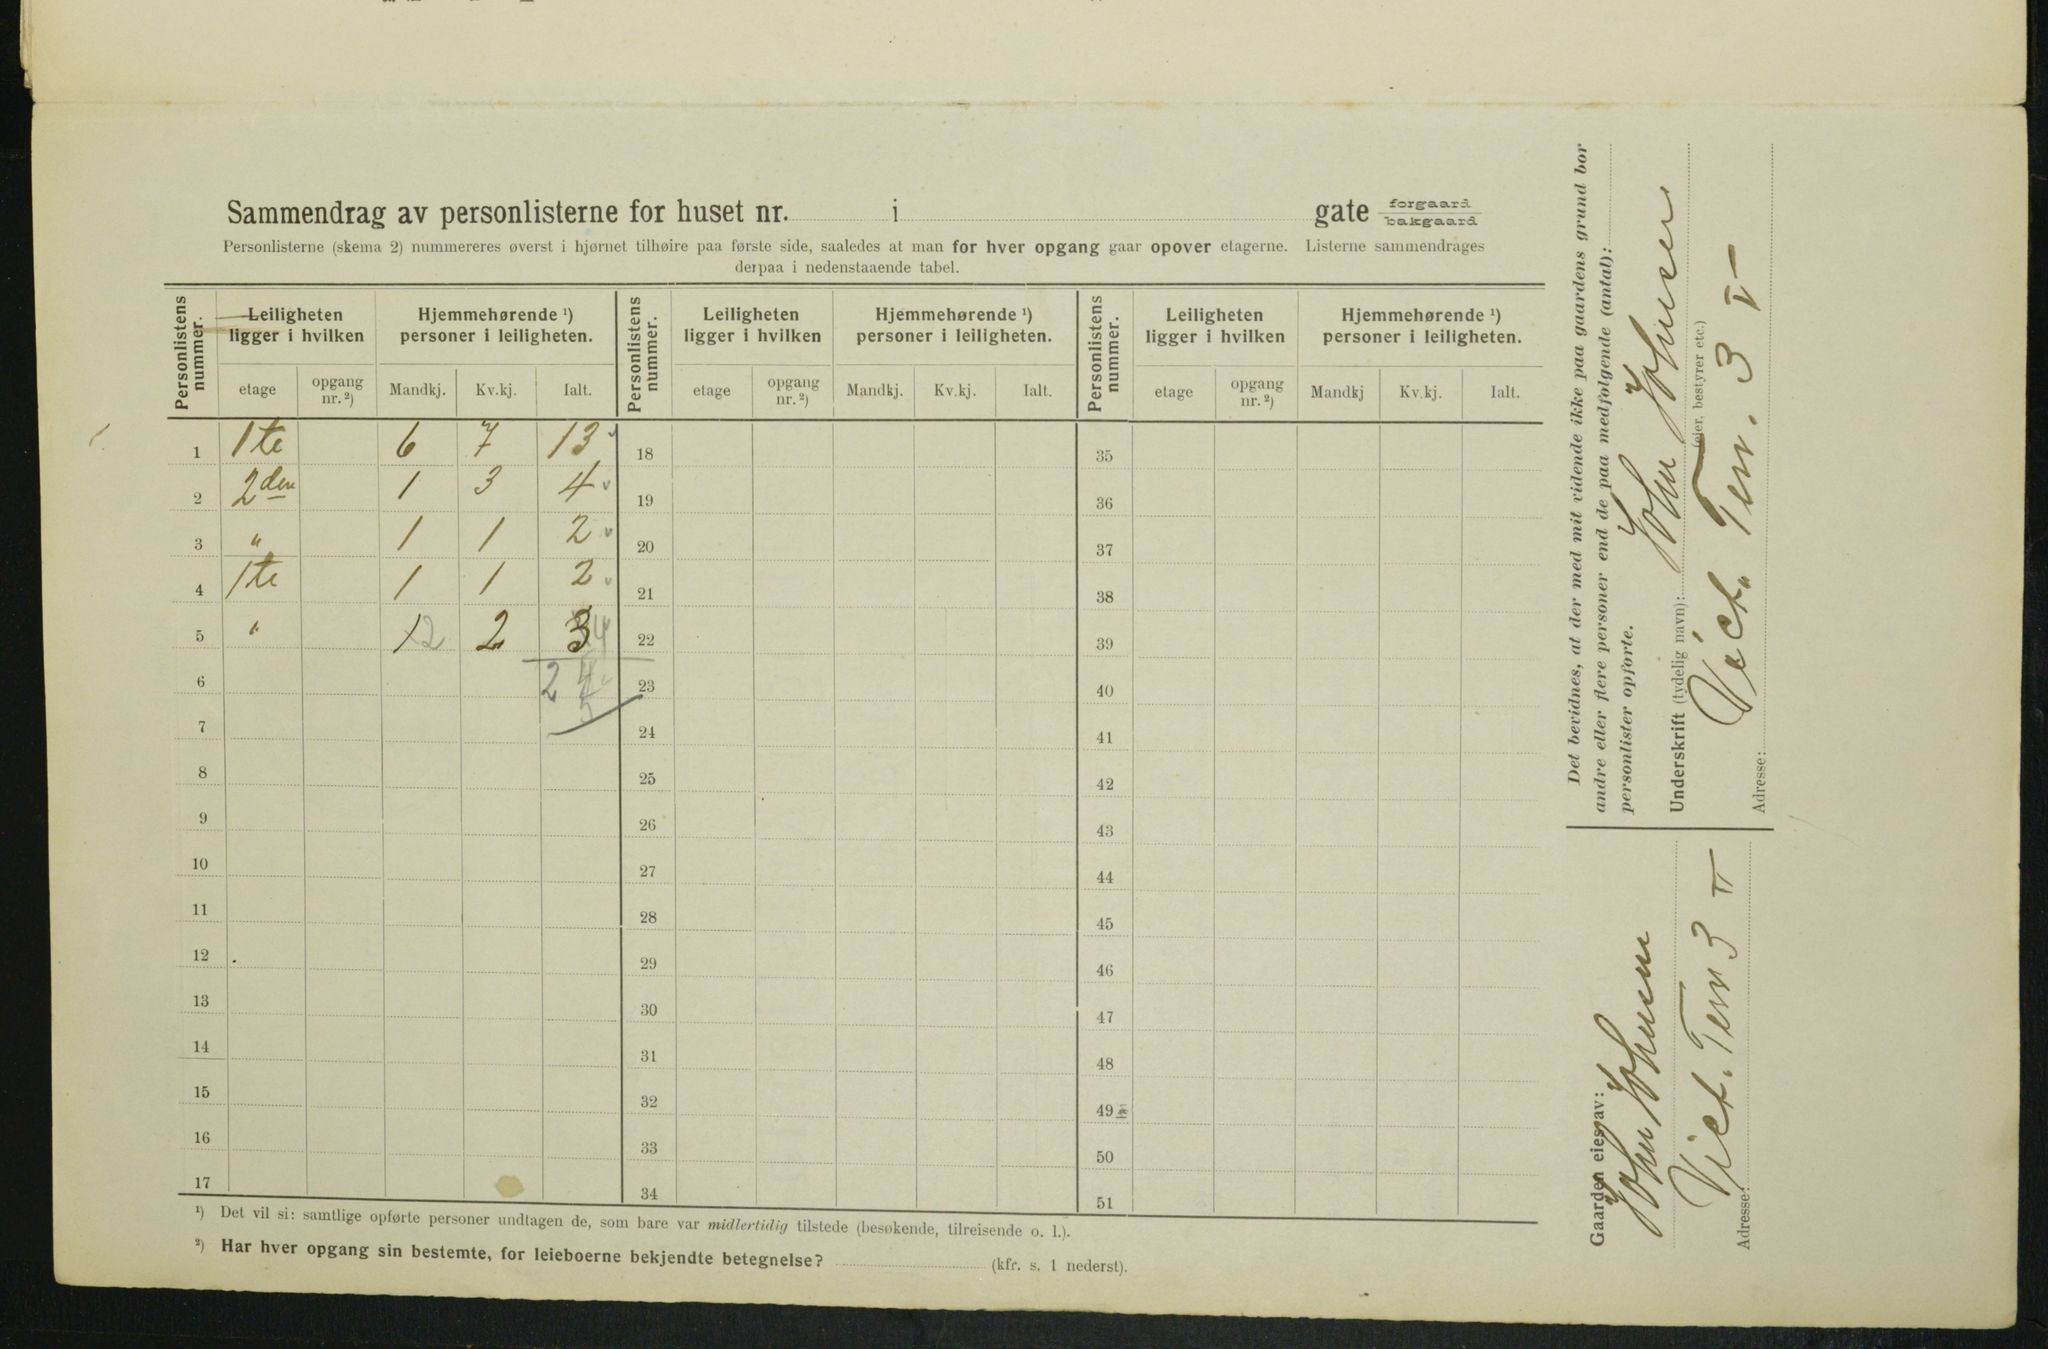 Sammendrag av personlisterne for huset nr. i gate forgaard bakgaard
Personlisterne (skema 2) nummereres øverst i hjørnet tilhøire paa første side, saaledes at man for hver opgang gaar opover etagerne. Listerne sammendrages
derpaa i nedenstaaende tabel.
Personlistens nummer. Leiligheten ligger i hvilken Hjemmehørende ¹) personer i leiligheten. Personlistens nummer. Leiligheten ligger i hvilken Hjemmehørende ¹) personer i leiligheten. Personlistens nummer. Leiligheten ligger i hvilken Hjemmehørende ¹) personer i leiligheten.
etage opgang nr. ²) Mandkj. Kv.kj. Ialt. etage opgang nr. ²) Mandkj. Kv.kj. Ialt. etage opgang nr. ²) Mandkj Kv.kj. Ialt.
1 1te 6 7 13 18 35
2 2den 1 3 4 19 36
3 " 1 1 2 20 37
4 1te 1 1 2 21 38
5 " 1 2 2 3 4 22 39
6 24 23 40
7 24 41
8 25 42
9 26 43
10 27 44
11 28 45
12 29 46
13 30 47
14 31 48
15 32 49
16 33 50
17 34 51
¹) Det vil si: samtlige opførte personer undtagen de, som bare var midlertidig tilstede (besøkende, tilreisende o. l.).
²) Har hver opgang sin bestemte, for leieboerne bekjendte betegnelse? (kfr. s. 1 nederst).
Det bevidnes, at der med mit vidende ikke paa gaardens grund bor
andre eller flere personer end de paa medfølgende (antal):
personlister opførte.
Underskrift (tydelig navn): John Johnsen
(eier, bestyrer etc.)
Adresse: Vict. Terr. 3 V
Gaarden eies av:
John Johnsen
Adresse: Vict. Terr 3 V